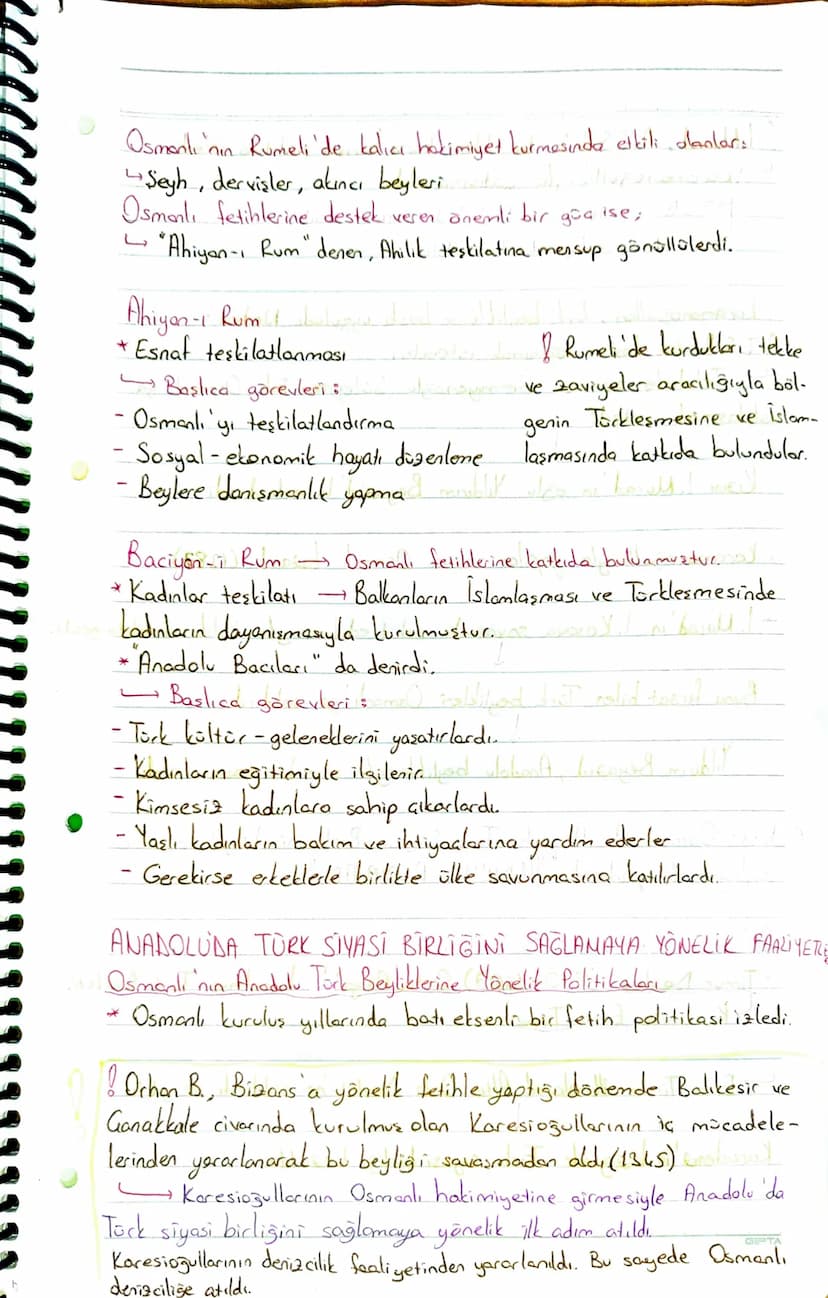 Osmanlı'nın Rumeli'de kalıcı hakimiyet kurmasında etkili olanlar:
↳ Şeyh, dervişler, akıncı beyleri
Osmanlı fetihlerine destek veren önemli bir güç ise;
↳ "Ahiyan-ı Rum" denen, Ahilik teşkilatına mensup gönüllülerdi.
Ahiyan-ı Rum
* Esnaf teşkilatlanması
↳ Başlıca görevleri:
- Osmanlı'yı teşkilatlandırma
- Sosyal-ekonomik hayatı düzenleme
- Beylere danışmanlık yapma
! Rumeli'de kurdukları tekke
ve zaviyeler aracılığıyla böl-
genin Türkleşmesine ve İslam-
laşmasında katkıda bulundular.
Baciyan-ı Rum → Osmanlı fetihlerine katkıda bulunmuştur.
* Kadınlar teşkilatı → Balkanların İslamlaşması ve Türkleşmesinde
kadınların dayanışmasıyla kurulmuştur.
* "Anadolu Bacıları" da denirdi.
↳ Başlıca görevleri:
- Türk kültür-geleneklerini yaşatırlardı.
- Kadınların eğitimiyle ilgilenir.
- Kimsesiz kadınlara sahip çıkarlardı.
- Yaşlı kadınların bakım ve ihtiyaçlarına yardım ederler
- Gerekirse erkeklerle birlikte ülke savunmasına katılırlardı.
ANADOLU'DA TÜRK SİYASİ BİRLİĞİNİ SAĞLAMAYA YÖNELİK FAALİYETLE
Osmanlı'nın Anadolu Türk Beyliklerine Yönelik Politikaları
* Osmanlı kuruluş yıllarında batı eksenli bir fetih politikası izledi.
! Orhan B., Bizans'a yönelik fetihle yaptığı dönemde Balıkesir ve
Çanakkale civarında kurulmuş olan Karesioğullarının iç mücadele-
lerinden yararlanarak bu beyliği savaşmadan aldı. (1345)
↳ Karesioğullarının Osmanlı hakimiyetine girmesiyle Anadolu'da
Türk siyasi birliğini sağlamaya yönelik ilk adım atıldı.
GIPTA
Karesioğullarının denizcilik faaliyetinden yararlanıldı. Bu sayede Osmanlı
denizciliğe atıldı.